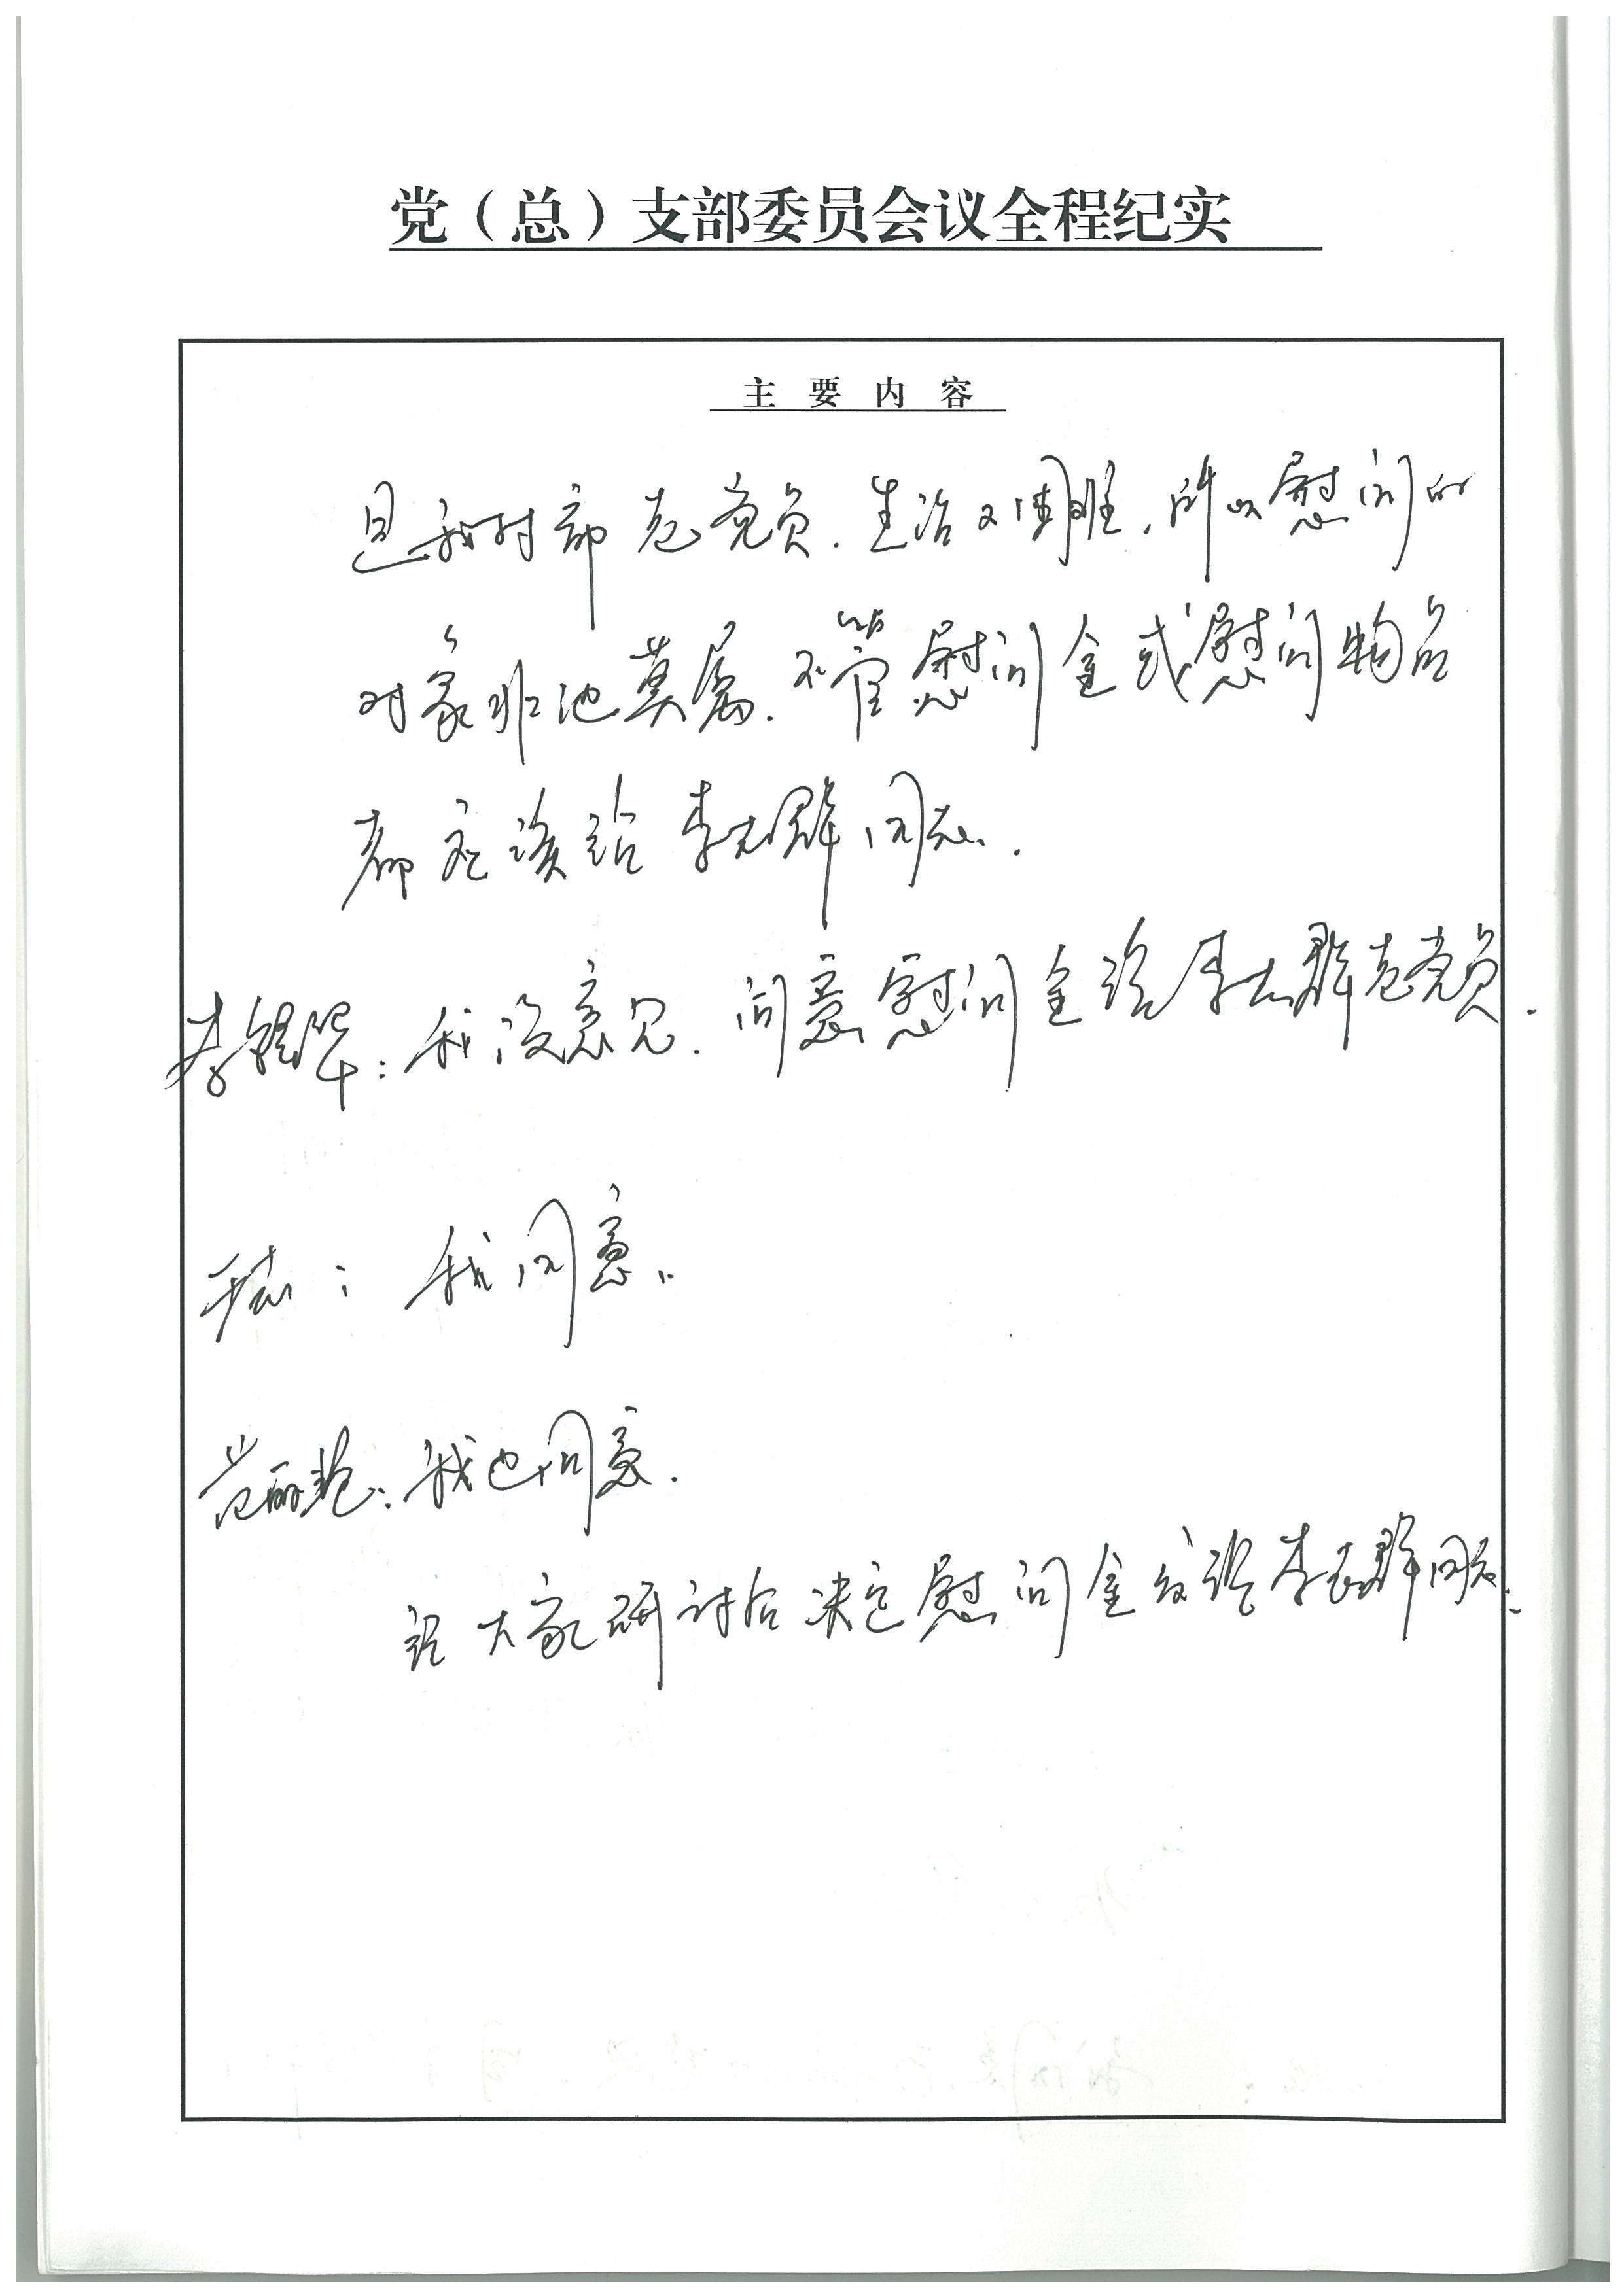 党（总）支部委员会议全程纪实
主 要 内 容
是我村部老党员.生活又困难,所以慰问的
对象非他莫属.不管慰问金或慰问物品
都应该给李志群同志.
李银华:我没意见.同意慰问金给李志群老党员.
我同意.
范丽艳:我也同意.
经大家研讨后决定慰问金发给李志群同志.